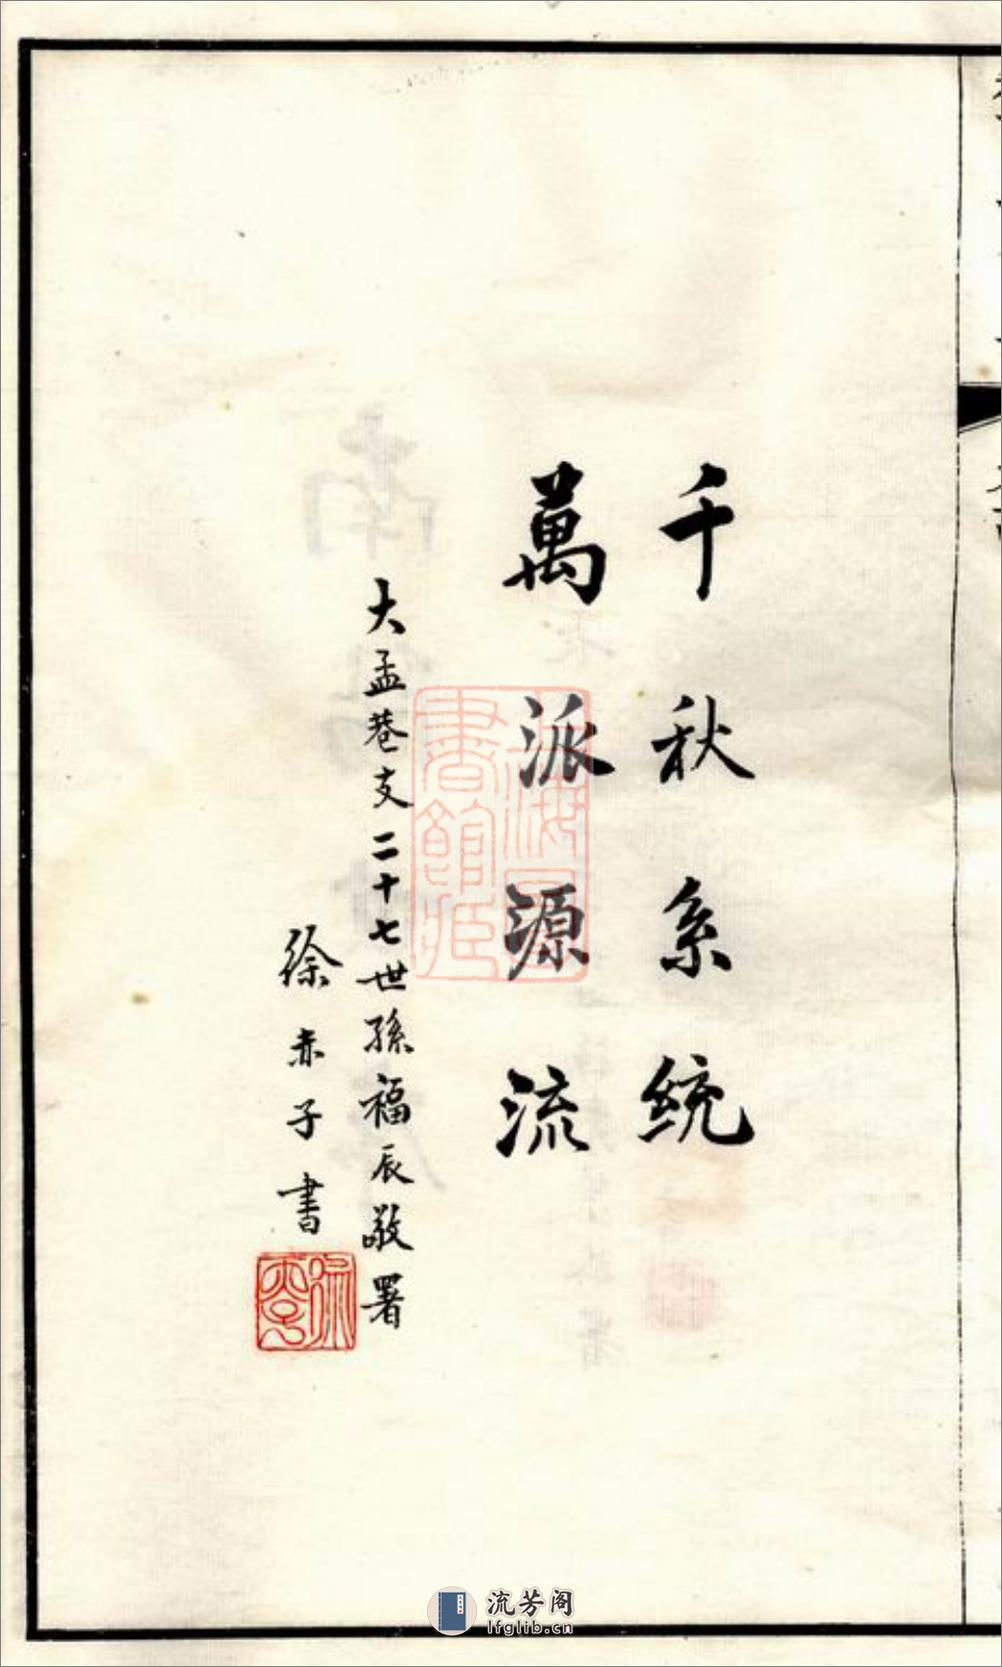 千秋系統
萬派源流
大孟巷支二十七世孫福辰敬署
徐赤子書
流芳阁
lfglib.cn